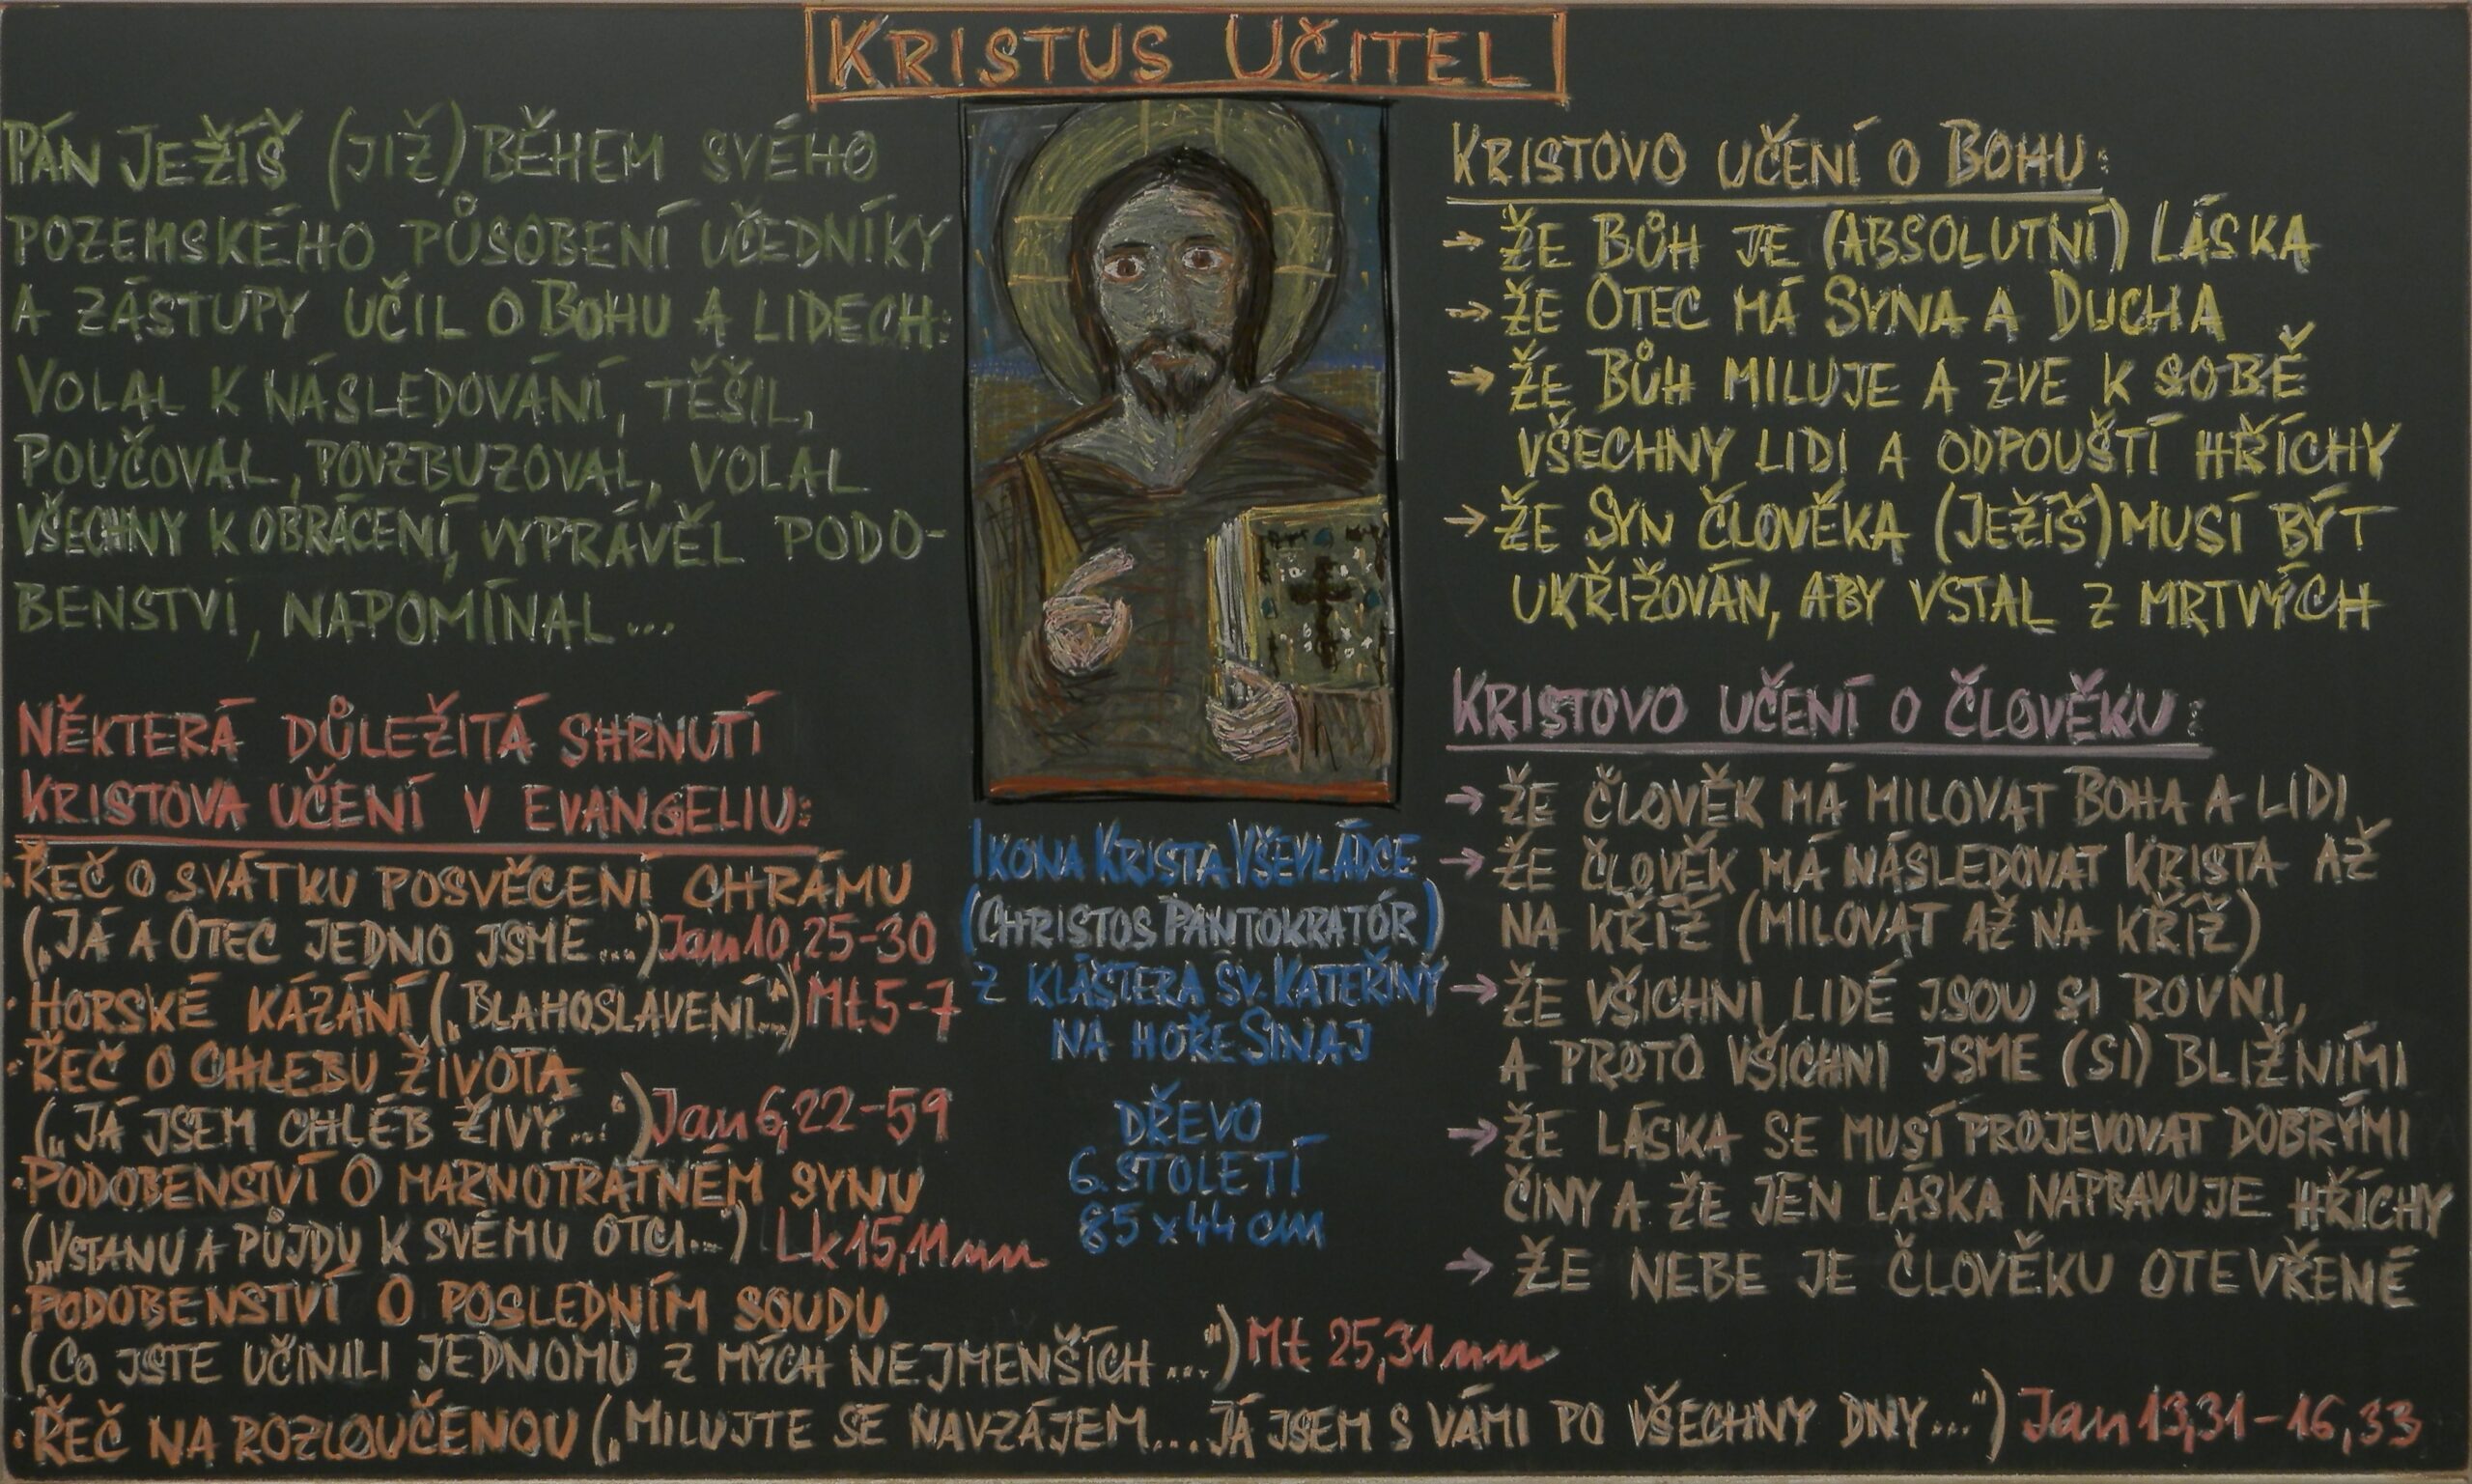 KRISTUS UČITEL
PÁN JEŽÍŠ (JIŽ) BĚHEM SVÉHO
POZEMSKÉHO PŮSOBENÍ UČEDNÍKY
A ZÁSTUPY UČIL O BOHU A LIDECH:
VOLAL K NÁSLEDOVÁNÍ, TĚŠIL,
POUČOVAL, POVZBUZOVAL, VOLAL
VŠECHNY K OBRÁCENÍ, VYPRÁVĚL PODO-
BENSTVÍ, NAPOMÍNAL...
NĚKTERÁ DŮLEŽITÁ SHRNUTÍ
KRISTOVA UČENÍ V EVANGELIU:
• ŘEČ O SVÁTKU POSVĚCENÍ CHRÁMU
(„JÁ A OTEC JEDNO JSME...“) Jan 10, 25-30
• HORSKÉ KÁZÁNÍ („BLAHOSLAVENÍ...“) Mt 5-7
• ŘEČ O CHLEBU ŽIVOTA
(„JÁ JSEM CHLÉB ŽIVÝ...“) Jan 6, 22-59
• PODOBENSTVÍ O MARNOTRATNÉM SYNU
(„VSTANU A PŮJDU K SVÉMU OTCI...“) Lk 15, 11nn
• PODOBENSTVÍ O POSLEDNÍM SOUDU
(„CO JSTE UČINILI JEDNOMU Z MÝCH NEJMENŠÍCH...“) Mt 25, 31nn
• ŘEČ NA ROZLOUČENOU („MILUJTE SE NAVZÁJEM... JÁ JSEM S VÁMI PO VŠECHNY DNY...“) Jan 13,31-16,33
IKONA KRISTA VŠEVLÁDCE
(CHRISTOS PANTOKRATÓR)
Z KLÁŠTERA SV. KATEŘINY
NA HOŘE SINAJ
DŘEVO
6. STOLETÍ
85 x 44 cm
KRISTOVO UČENÍ O BOHU:
→ ŽE BŮH JE (ABSOLUTNÍ) LÁSKA
→ ŽE OTEC MÁ SYNA A DUCHA
→ ŽE BŮH MILUJE A ZVE K SOBĚ
VŠECHNY LIDI A ODPOUŠTÍ HŘÍCHY
→ ŽE SYN ČLOVĚKA (JEŽÍŠ) MUSÍ BÝT
UKŘIŽOVÁN, ABY VSTAL Z MRTVÝCH
KRISTOVO UČENÍ O ČLOVĚKU:
→ ŽE ČLOVĚK MÁ MILOVAT BOHA A LIDI
→ ŽE ČLOVĚK MÁ NÁSLEDOVAT KRISTA AŽ
NA KŘÍŽ (MILOVAT AŽ NA KŘÍŽ)
→ ŽE VŠICHNI LIDÉ JSOU SI ROVNI,
A PROTO VŠICHNI JSME (SI) BLIŽNÍMI
→ ŽE LÁSKA SE MUSÍ PROJEVOVAT DOBRÝMI
ČINY A ŽE JEN LÁSKA NAPRAVUJE HŘÍCHY
→ ŽE NEBE JE ČLOVĚKU OTEVŘENÉ